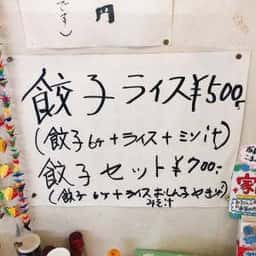 円
です)
餃子ライス¥500.
(餃子6ヶ+ライス+ミソ汁)
餃子セット¥700.-
(餃子6ヶ+ライスおしんこやきそば
みそ汁